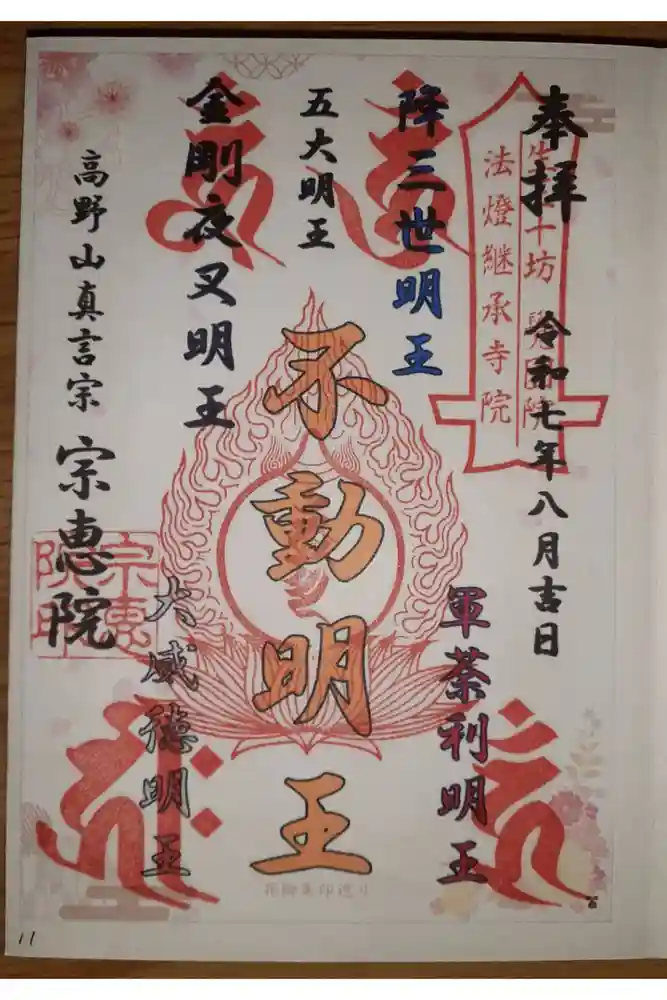 奉拝
令和七年八月吉日
法燈継承寺院
降三世明王
五大明王
不動明王
軍荼利明王
金剛夜叉明王
大威徳明王
高野山真言宗
宗恵院
11